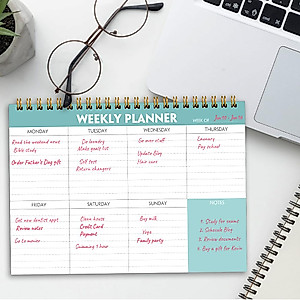 WEEKLY PLANNER
WEEK OF
MONDAY
Read the weekend news
Bible study
Order Father's Day gift
TUESDAY
Do laundry
Make goals list
Self test
Return changers
WEDNESDAY
Update Blog
Hair care
THURSDAY
Laundry
Pay school
FRIDAY
Review notes
Go to movie
SATURDAY
Clean house
Credit Card
Payment
Summing 1 hour
SUNDAY
Buy milk
Yoga
Family party
NOTES
1. Study for exams
2. Schedule Blog
3. Review documents
4. Buy a gift for Kevin